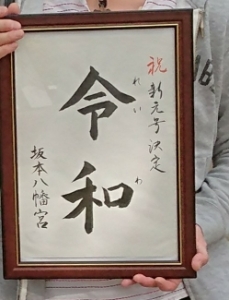 祝 新元号決定
令和
れいわ
坂本八幡宮